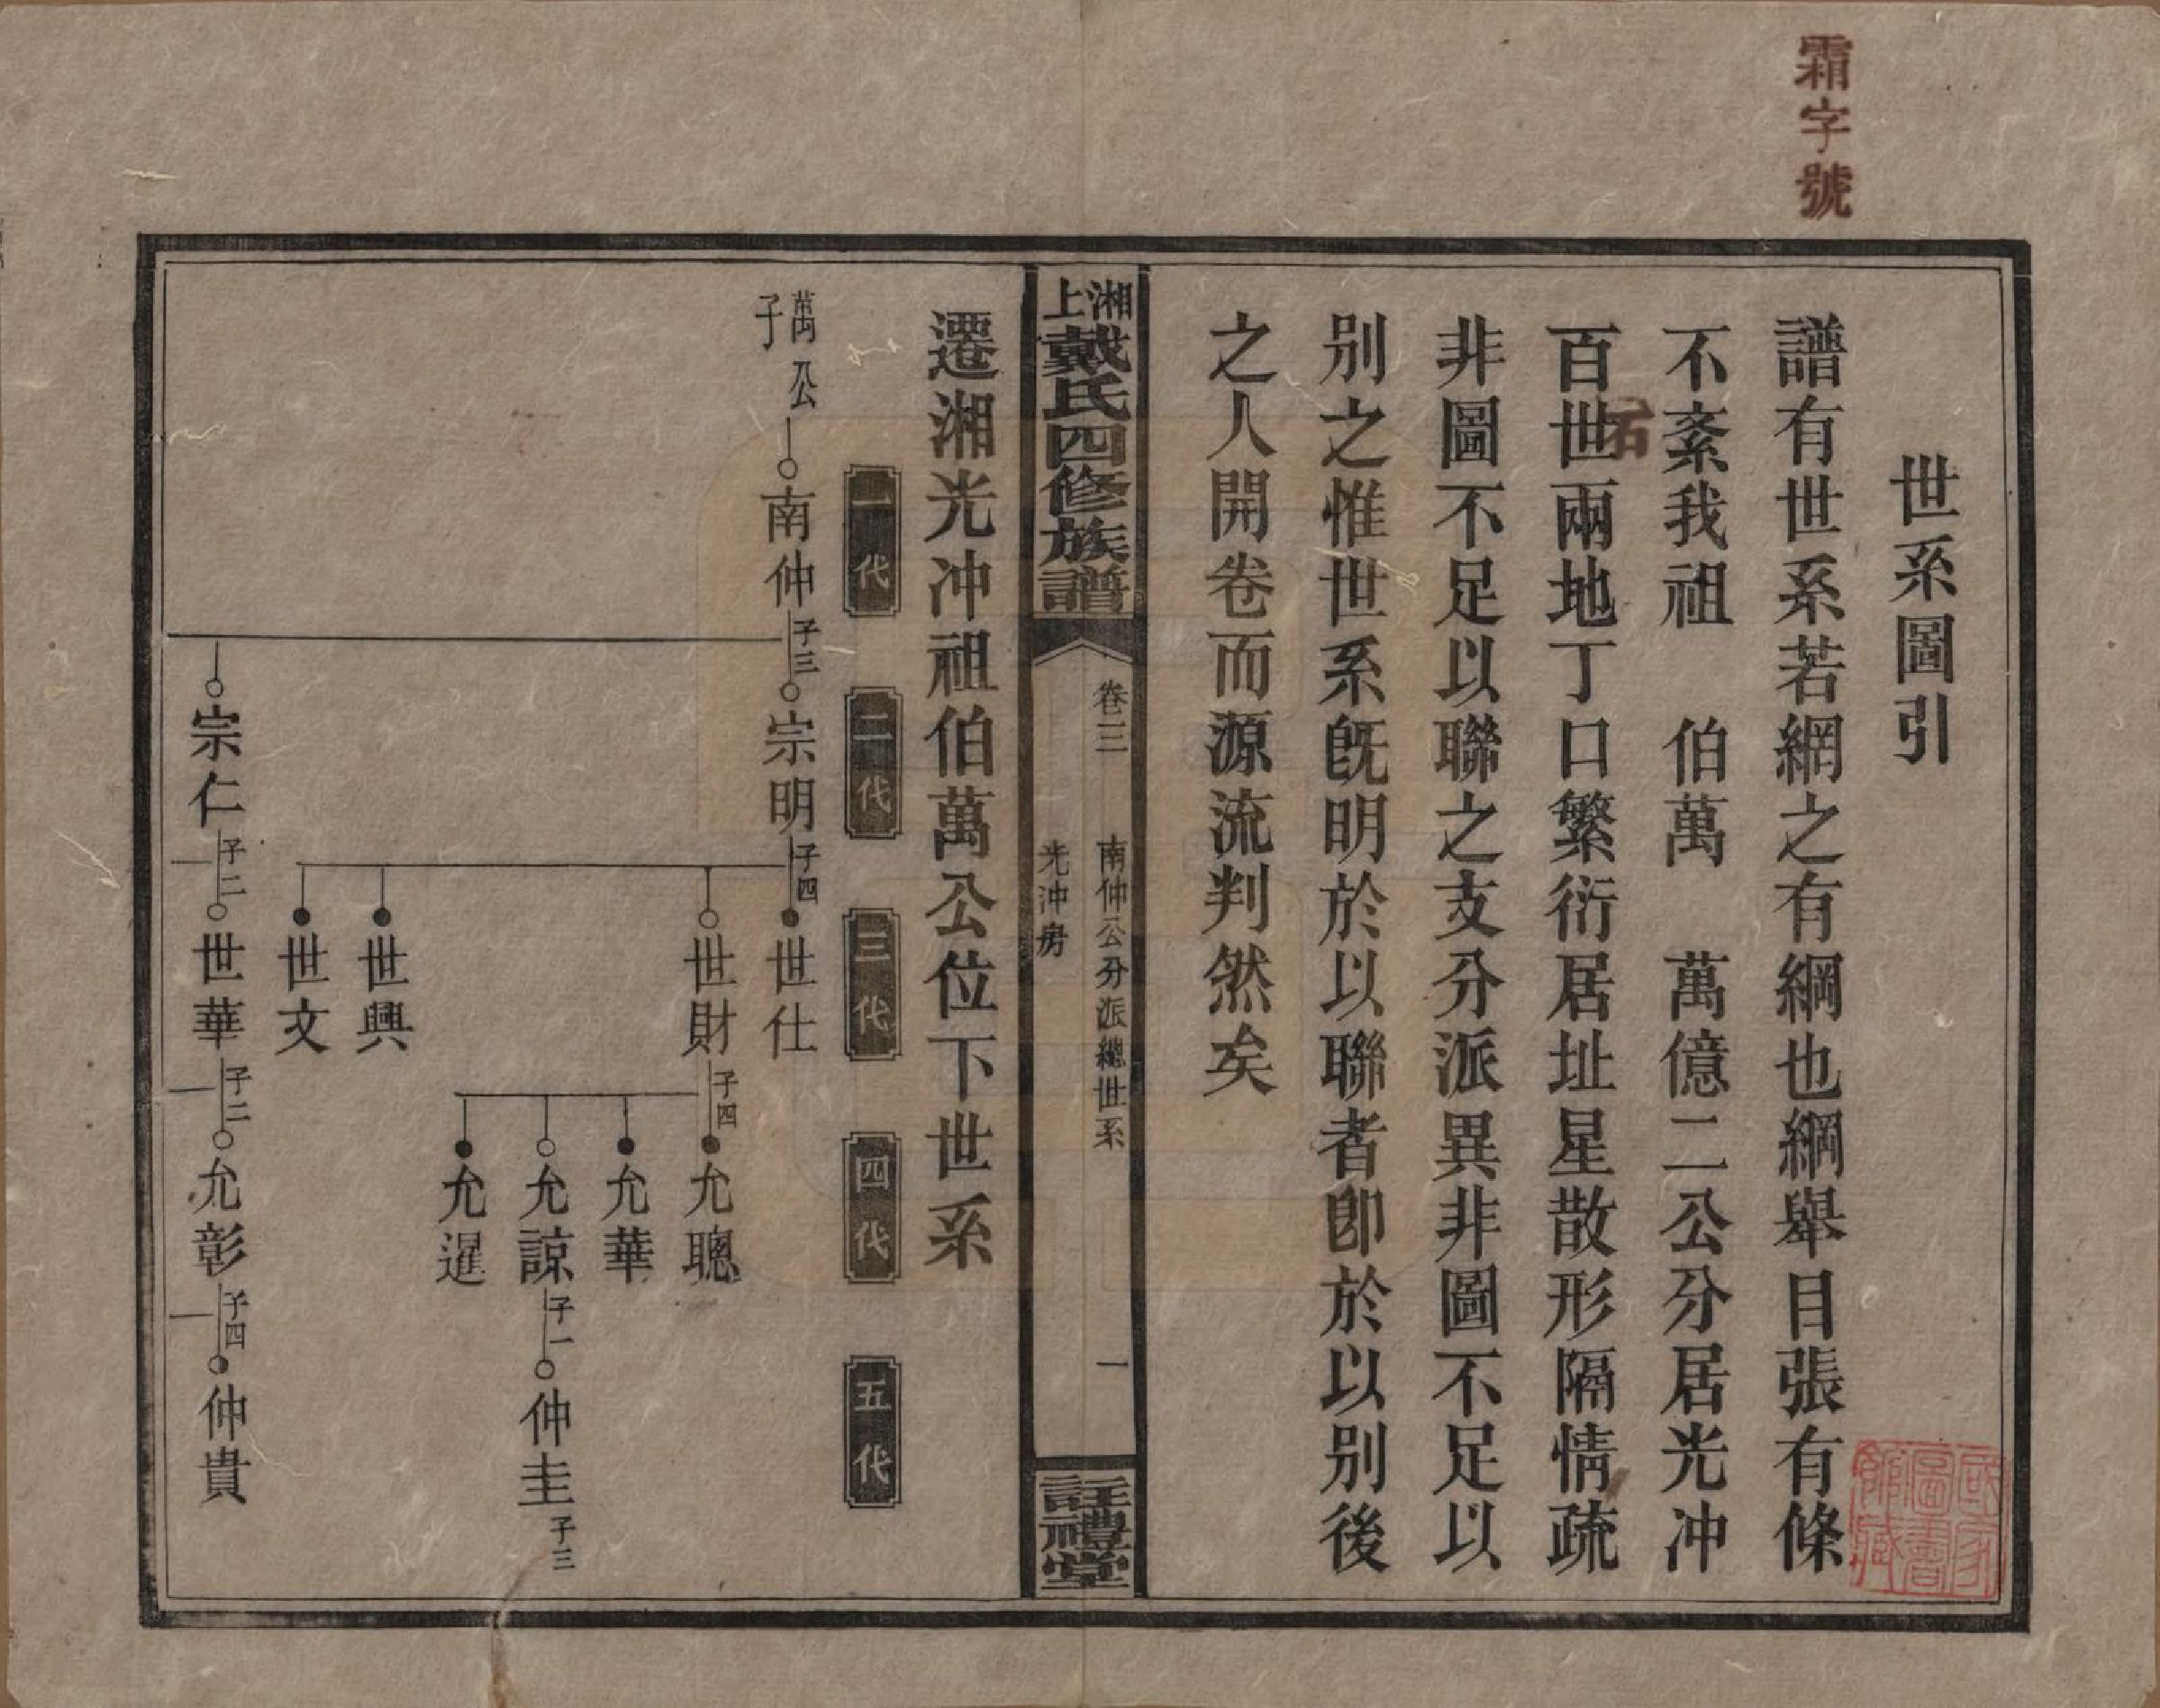 霜字號
世系圖引
譜有世系若網之有綱也綱舉目張有條
不紊我祖　伯萬　萬億二公分居光冲
百世兩地丁口繁衍居址星散形隔情疏
非圖不足以聯之支分派異非圖不足以
別之惟世系旣明於以聯者卽於以别後
之人開卷而源流判然矣
湘上戴氏四修族譜
卷三
南仲公分派總世系
光沖房
一
註禮堂
遷湘光冲祖伯萬公位下世系
一代
二代
三代
四代
五代
萬公子
南仲 子三
宗明 子四
世仕
世財 子四
允聰
允華
允諒 子一
仲圭 子三
允暹
世興
世文
宗仁 子二
世華 子二
允彰 子四
仲貴
國家圖書館藏